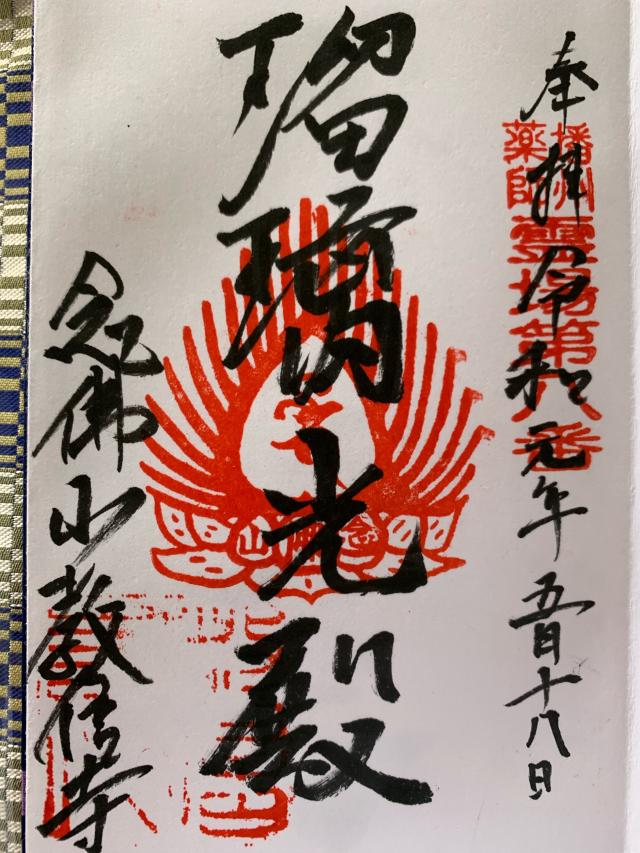 奉拝 令和元年 五月十八日
播州
薬師
霊場第八番
瑠璃光殿
念佛山
念佛山教信寺